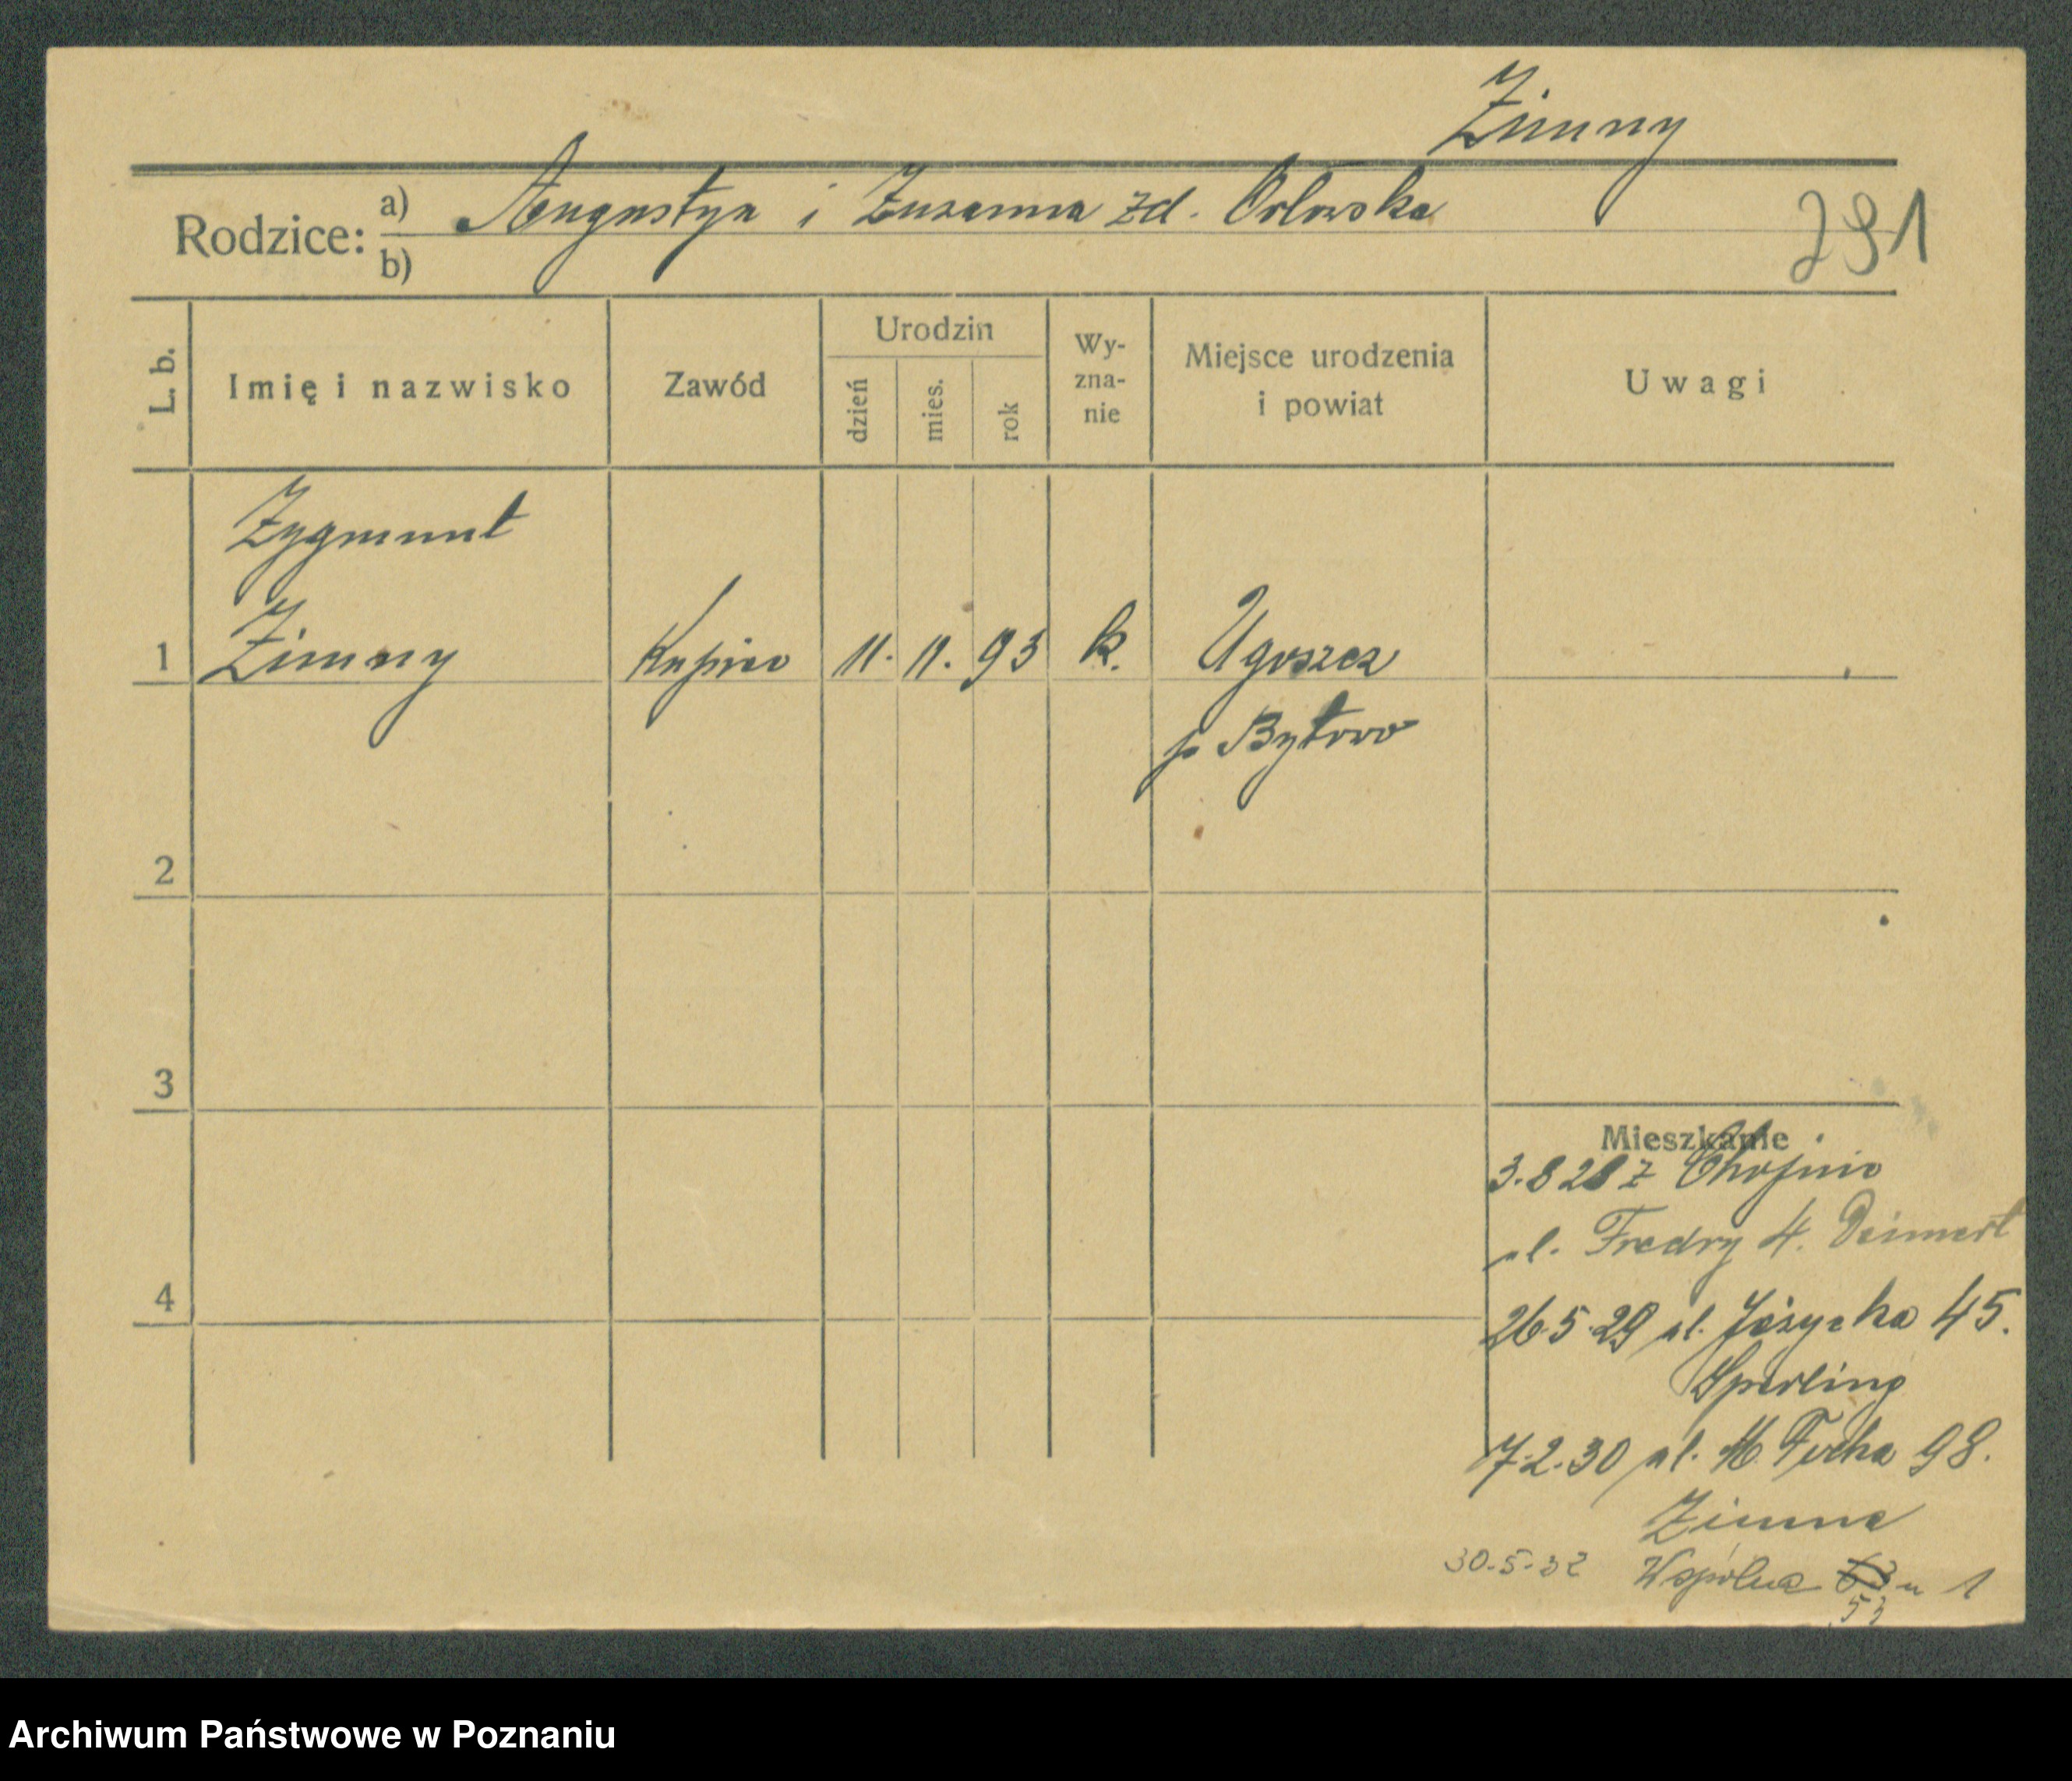 Zimny
Rodzice: a) Augustyn i Zuzanna zd. Orłowska
b)
291
L. b.
Imię i nazwisko
Zawód
Urodzin
dzień
mies.
rok
Wy-
zna-
nie
Miejsce urodzenia
i powiat
Uwagi
Zygmunt
1 Zimny Kupiec 11. 11. 93 k. Ugoszcz
p Bytowo
2
3
4
Mieszkanie
3.8 28 z Chojnic
ul. Fredry 4.
26.5.29 ul. 45.
Sperling
7.2.30 ul. M. Focha 98.
Zimna
30.5.32 Wspólna 1
53
Archiwum Państwowe w Poznaniu